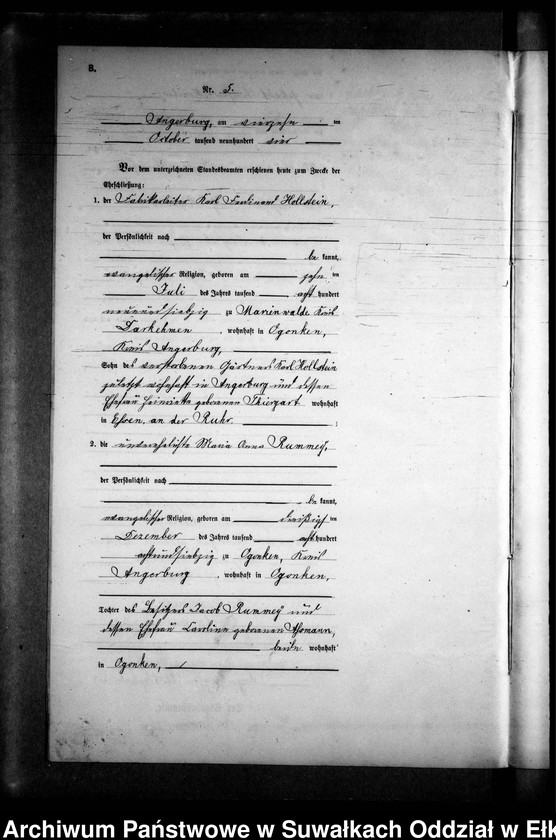 8.
Nr. 5.
Angerburg, am vierzehnten
October tausend neunhundert vier
Vor dem unterzeichneten Standesbeamten erschienen heute zum Zwecke der
Eheschließung:
1. der Fabrikarbeiter Karl Ferdinand Hollstein,
der Persönlichkeit nach
be kannt,
evangelischer Religion, geboren am zehn ten
Juli des Jahres tausend acht hundert
neunundsiebzig zu Marienwalde Kreis
Darkehmen, wohnhaft in Ogonken,
Kreis Angerburg,
Sohn des verstorbenen Gärtners Karl Hollstein
zuletzt wohnhaft in Angerburg und dessen
Ehefrau Henriette geborenen Thiergart wohnhaft
in Essen, an der Ruhr. ;
2. die unverehelichte Maria Anna Rummey,
der Persönlichkeit nach
be kannt,
evangelischer Religion, geboren am dreißigsten
Dezember des Jahres tausend acht hundert
achtundsiebzig zu Ogonken, Kreis
Angerburg, wohnhaft in Ogonken,
Tochter des Besitzers Jacob Rummey und
dessen Ehefrau Caroline geborenen Thomann,
beide wohnhaft
in Ogonken,
Archiwum Państwowe w Suwałkach Oddział w Ełk